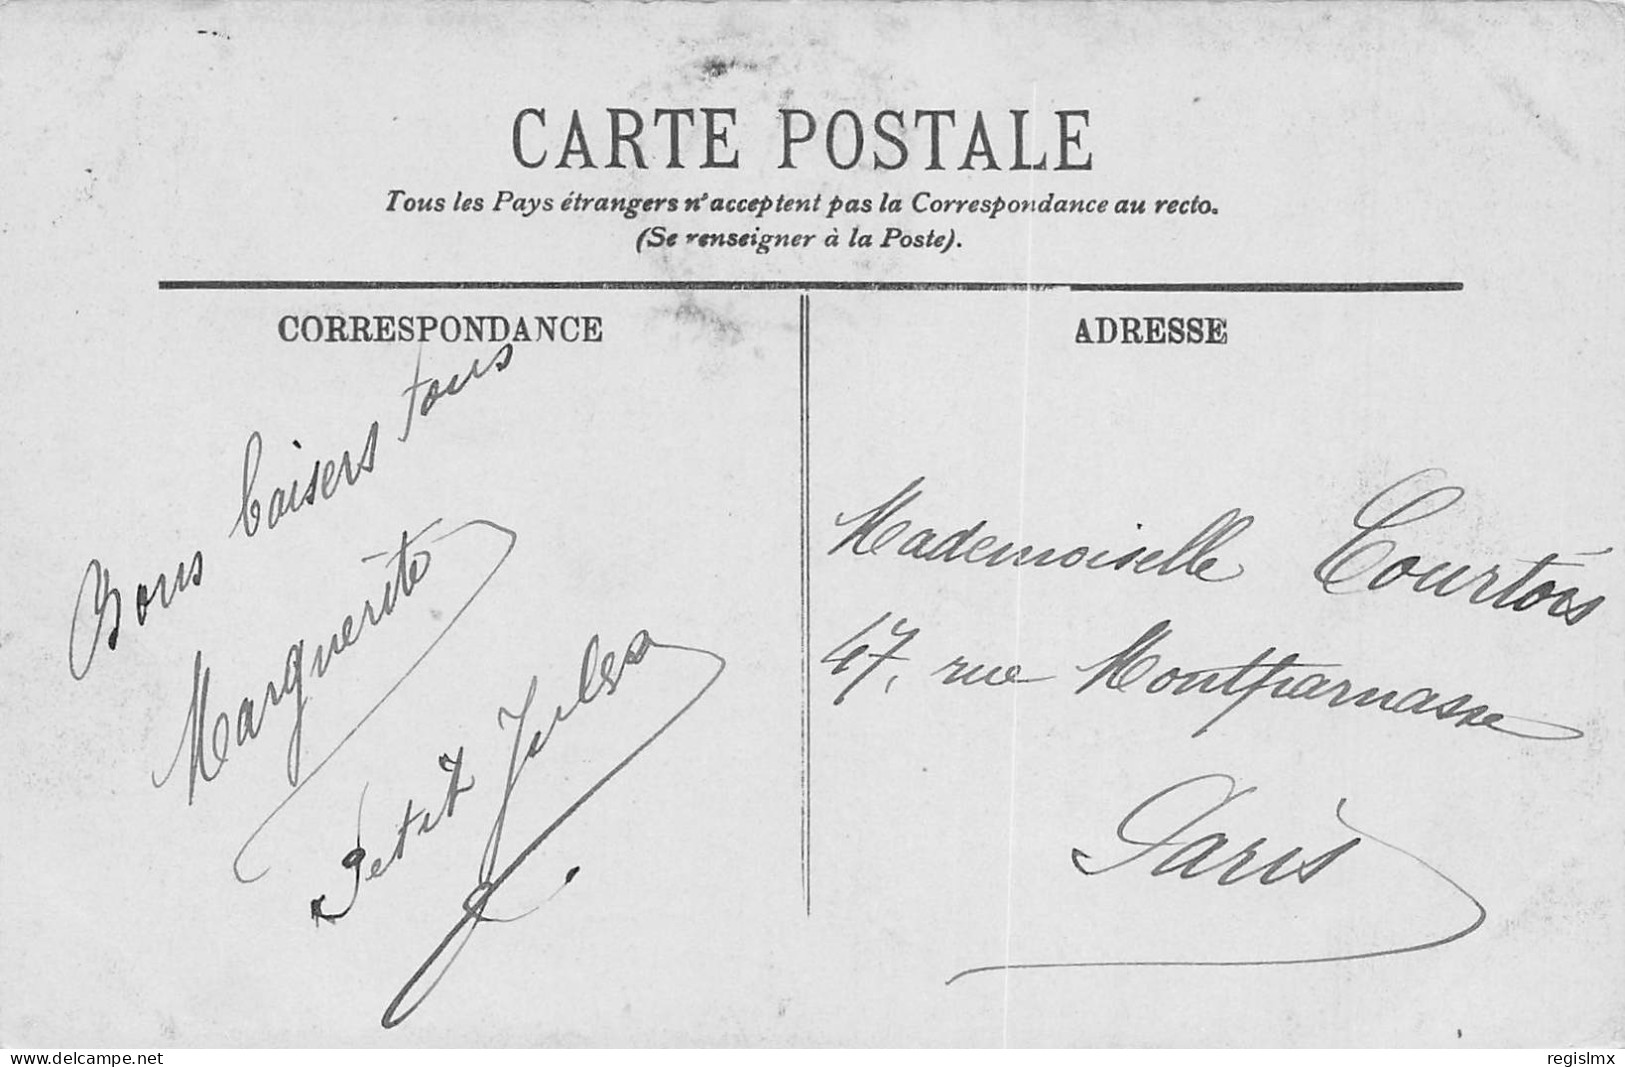 CARTE POSTALE
Tous les Pays étrangers n'acceptent pas la Correspondance au recto.
(Se renseigner à la Poste).
CORRESPONDANCE
Bons baisers tous
Marguerite
Petit Jules
ADRESSE
Mademoiselle Courtois
47, rue Montparnasse
Paris
www.delcampe.net
regislmx